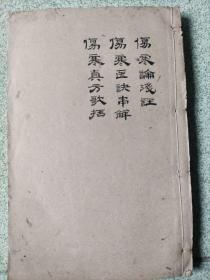 傷寒論淺註
傷寒醫訣串解
傷寒真方歌括